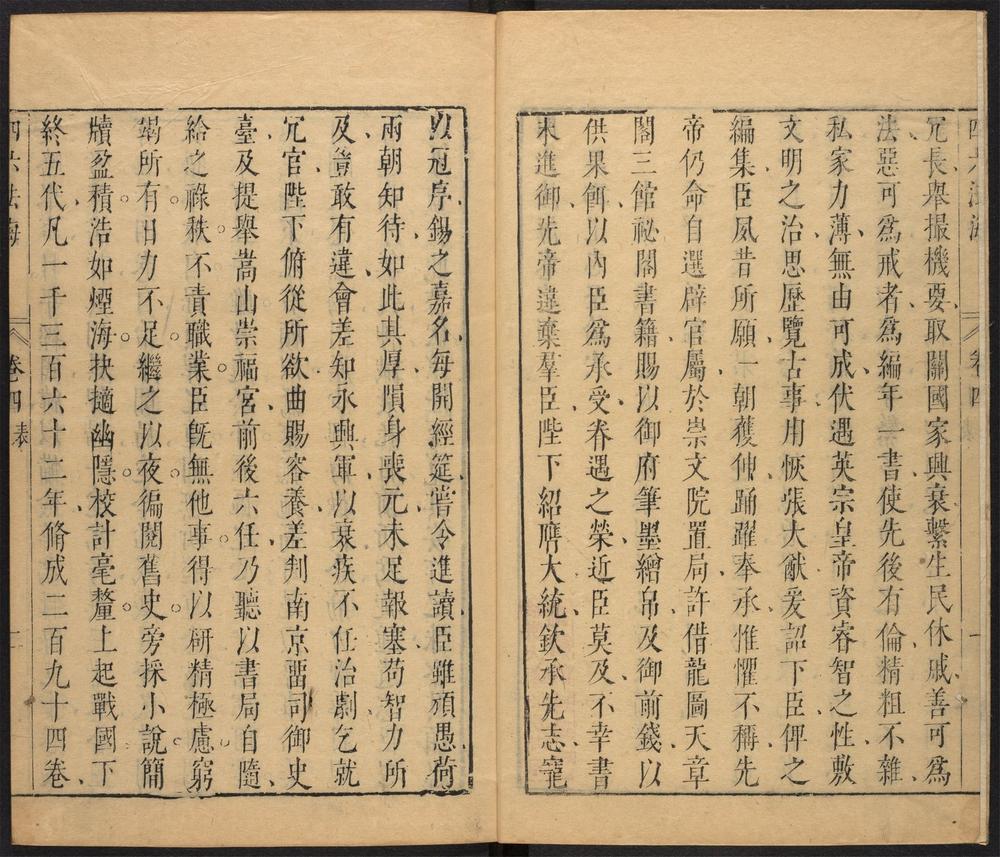 四六法海 卷四 一
冗長舉撮機要取關國家興衰繫生民休戚善可爲
法惡可爲戒者爲編年一書使先後有倫精粗不雜
私家力薄無由可成伏遇英宗皇帝資睿智之性敷
文明之治思歷覽古事用恢張大猷爰詔下臣俾之
編集臣夙昔所願一朝獲伸踊躍奉承惟懼不稱先
帝仍命自選辟官屬於崇文院置局許借龍圖天章
閣三館祕閣書籍賜以御府筆墨繒帛及御前錢以
供果餌以內臣爲承受眷遇之榮近臣莫及不幸書
未進御先帝違棄羣臣陛下紹膺大統欽承先志寵
以冠序錫之嘉名每開經筵嘗令進讀臣雖頑愚荷
兩朝知待如此其厚隕身喪元未足報塞苟智力所
及豈敢有違會差知永興軍以衰疾不任治劇乞就
冗官陛下俯從所欲曲賜容養差判南京畱司御史
臺及提舉嵩山崇福宮前後六任乃聽以書局自隨
給之祿秩不責職業臣旣無他事得以研精極慮窮
竭所有日力不足繼之以夜徧閱舊史旁採小說簡
牘盈積浩如煙海抉擿幽隱校計毫釐上起戰國下
終五代凡一千三百六十二年脩成二百九十四卷
四六法海 卷四 表